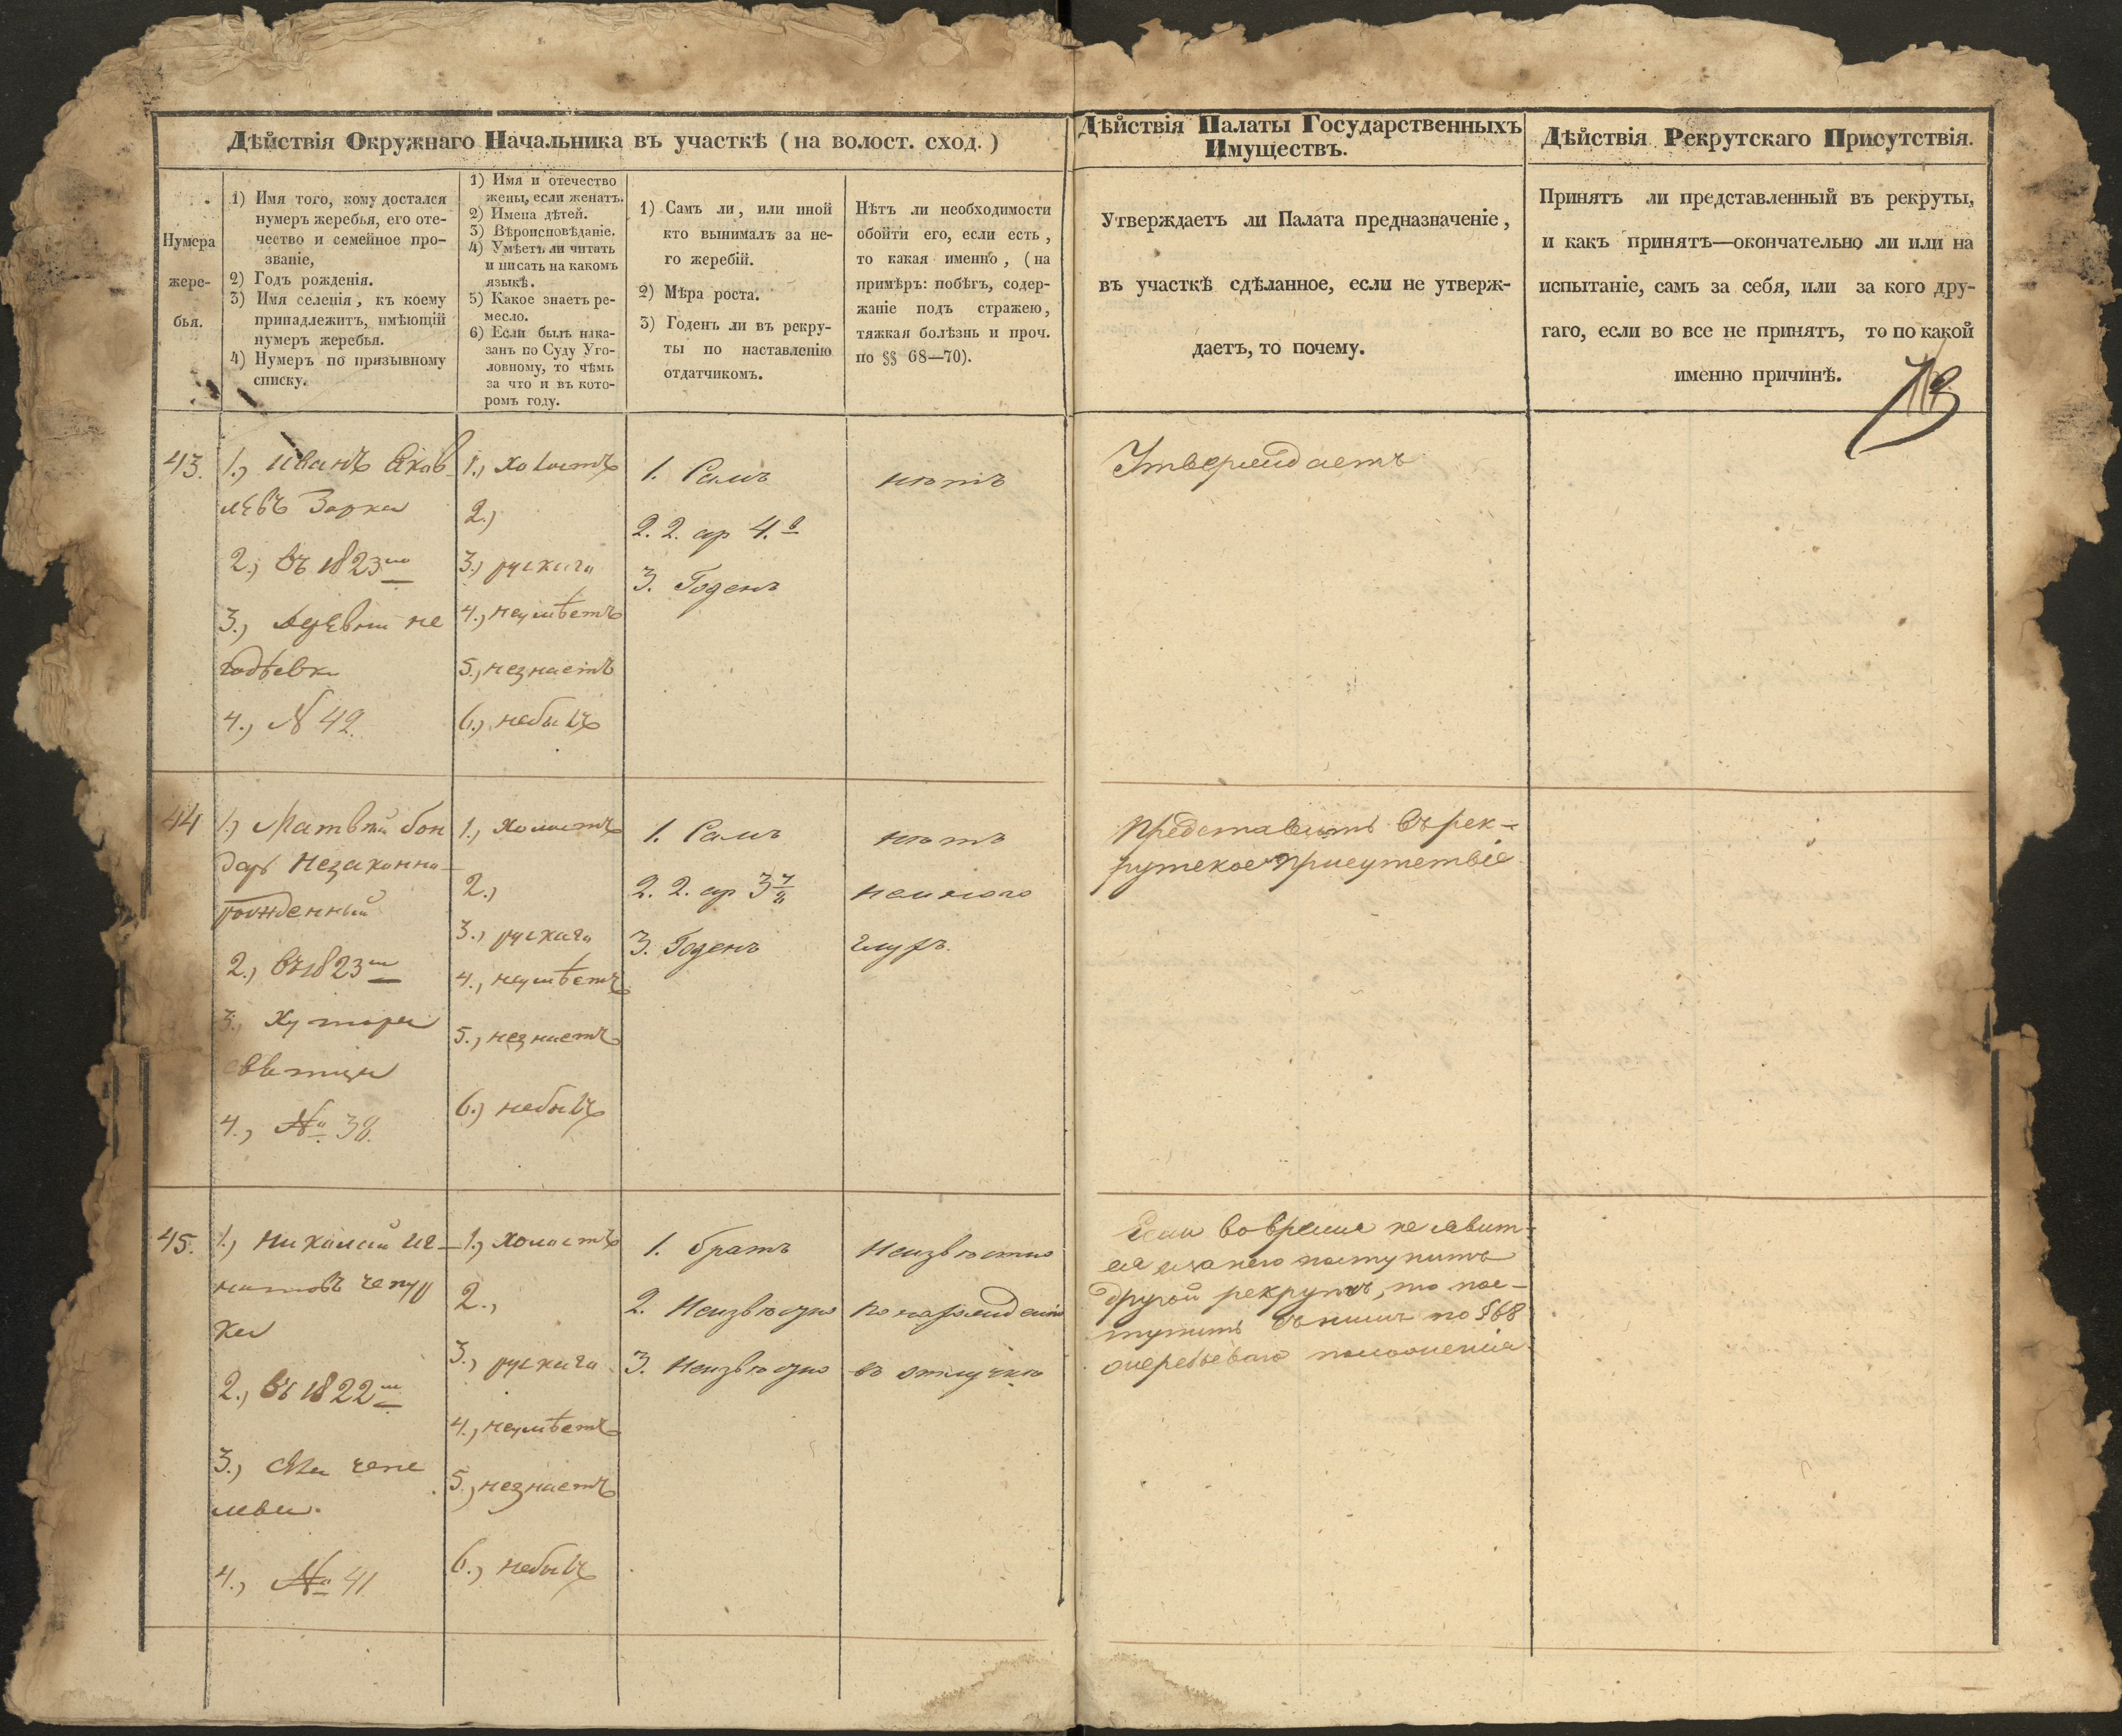 Дѣйствія Окружнаго Начальника въ участкѣ (на волост. сход.)
Нумера
жере-
бья.
1) Имя того, кому достался
нумеръ жеребья, его оте-
чество и семейное про-
званіе,
2) Годъ рожденія.
3) Имя селенія, къ коему
принадлежитъ, имѣющій
нумеръ жеребья.
4) Нумеръ по призывному
списку.
1) Имя и отечество
жены, если женатъ.
2) Имена дѣтей.
3) Вѣроисповѣданіе.
4) Умѣетъ ли читать
и писать на какомъ
языкѣ.
5) Какое знаетъ ре-
месло.
6) Если былъ нака-
занъ по Суду Уго-
ловному, то чѣмъ
за что и въ кото-
ромъ году.
1) Самъ ли, или иной
кто вынималъ за не-
го жеребій.
2) Мѣра роста.
3) Годенъ ли въ рекру-
ты по наставленію
отдатчикомъ.
Нѣтъ ли необходимости
обойти его, если есть,
то какая именно, (на
примѣръ: побѣгъ, содер-
жаніе подъ стражею,
тяжкая болѣзнь и проч.
по §§ 68—70).
Дѣйствія Палаты Государственныхъ
Имуществъ.
Утверждаетъ ли Палата предназначеніе,
въ участкѣ сдѣланное, если не утверж-
даетъ, то почему.
Дѣйствія Рекрутскаго Присутствія.
Принятъ ли представленный въ рекруты,
и какъ принятъ—окончательно ли или на
испытаніе, самъ за себя, или за кого дру-
гаго, если во все не принятъ, то по какой
именно причинѣ.
43.
1., иванъ Яков
левъ Зорка
2., въ 1823мъ
3., деревни не
годѣевки
4., N 42.
1., холостъ
2.)
3.) рускаго
4., неумѣетъ
5., незнаетъ
6., небылъ
1. Самъ
2. 2. ар 4. в
3. Годенъ
нѣтъ
Утверждаетъ
44
1.) Матвѣй бон
дарь Незаконно-
рожденный
2., въ 1823мъ
3., Хутора
4., № 38.
1., холостъ
2.,
3., рускаго
4., неумѣетъ
5., незнаетъ
6.) небылъ
1. Самъ
2. 2. ар 3 7/8
3. Годенъ
нѣтъ
немного
глухъ.
представить въ рек-
рутское присутствіе
45.
1., николай иг-
натовъ чепур
ка
2., въ 1822мъ
3.,
4., № 41
1., холостъ
2.,
3., рускаго
4., неумѣетъ
5., незнаетъ
6., небылъ
1. братъ
2. Неизвѣстно
3. Неизвѣстно
Неизвѣстно
по нахожденію
въ отлучкѣ
Если во время не явит-
ся и за него поступитъ
другой рекрутъ, то пос-
тупить съ нимъ по § 68
жеребьеваго положенія.